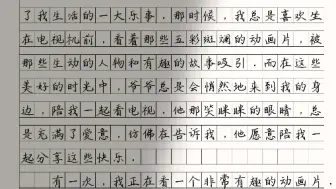 了我生活的一大乐事，那时候，我总是喜欢坐
在电视机前，看着那些五彩斑斓的动画片，被
那些生动的人物和有趣的故事吸引。而在这些
美好的时光中，爷爷总是会悄然地来到我的身
边，陪我一起看电视，他那笑眯眯的眼睛，总
是充满了爱意，仿佛在告诉我，他愿意陪我一
起分享这些快乐。
有一次，我正在看一个非常有趣的动画片